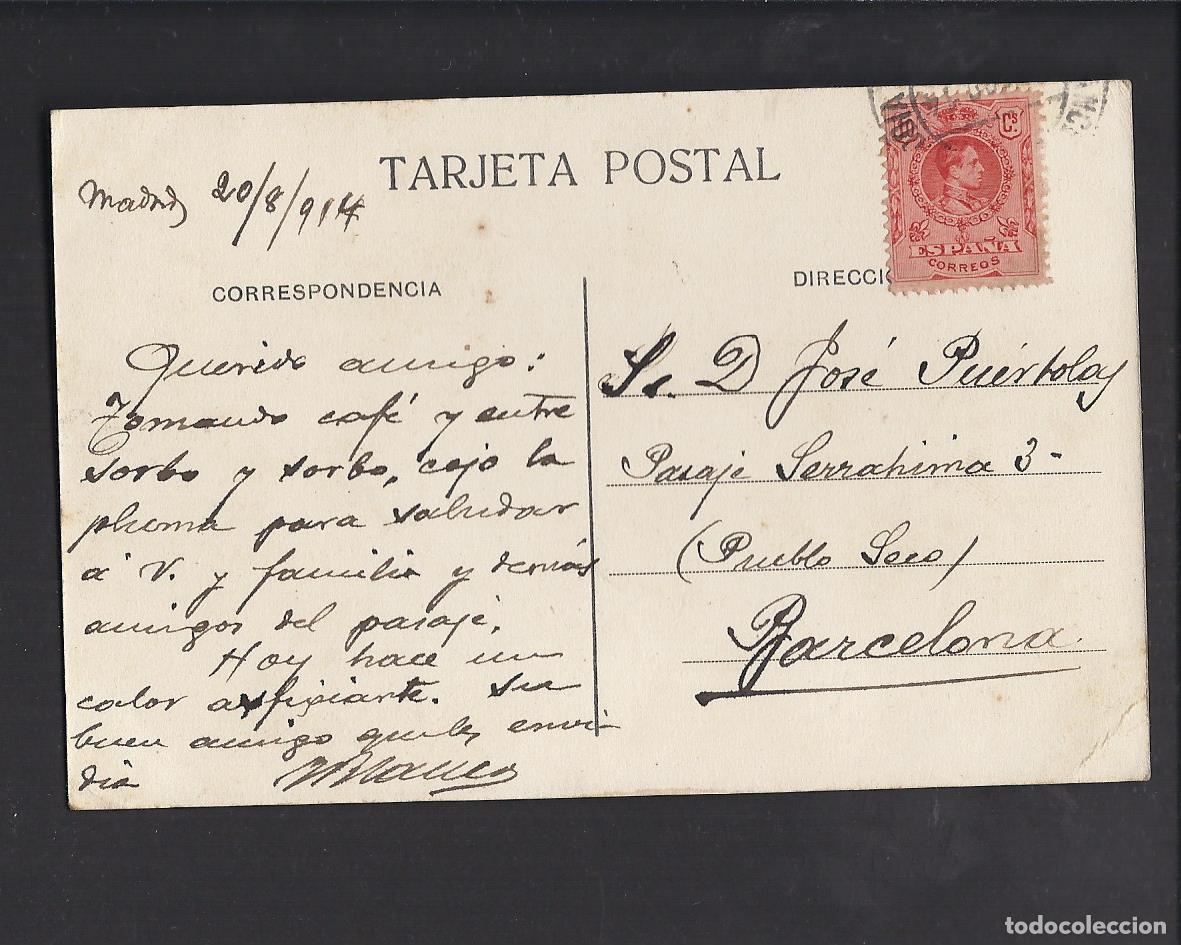 TARJETA POSTAL
Madrid 20/8/914
CORRESPONDENCIA
Querido amigo:
Tomando café y entre
sorbo y sorbo, cojo la
pluma para saludar
á V. y familia y demás
amigos del pasaje.
Hoy hace un
calor asfixiante. Su
buen amigo que les envi-
dia
DIRECCI
Sr. D José Puértolas
Pasaje Serrahima 3-
(Pueblo Seco)
Barcelona
Cs.
ESPAÑA
CORREOS
todocoleccion